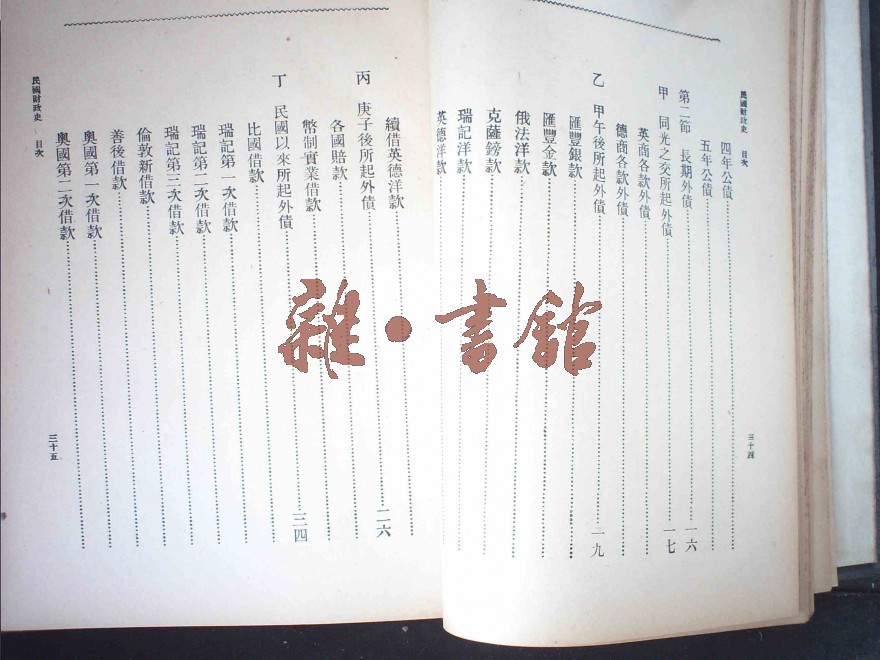 民國財政史 目次
三十四
四年公債
五年公債
第二節 長期外債 一六
甲 同光之交所起外債 一七
英商各款外債
德商各款外債
乙 甲午後所起外債 一九
匯豐銀款
匯豐金款
俄法洋款
克薩鎊款
瑞記洋款
英德洋款
續借英德洋款
丙 庚子後所起外債 二六
各國賠款
幣制實業借款
丁 民國以來所起外債 三四
比國借款
瑞記第一次借款
瑞記第二次借款
瑞記第三次借款
倫敦新借款
善後借款
奧國第一次借款
奧國第二次借款
民國財政史 目次
三十五
雜·書館